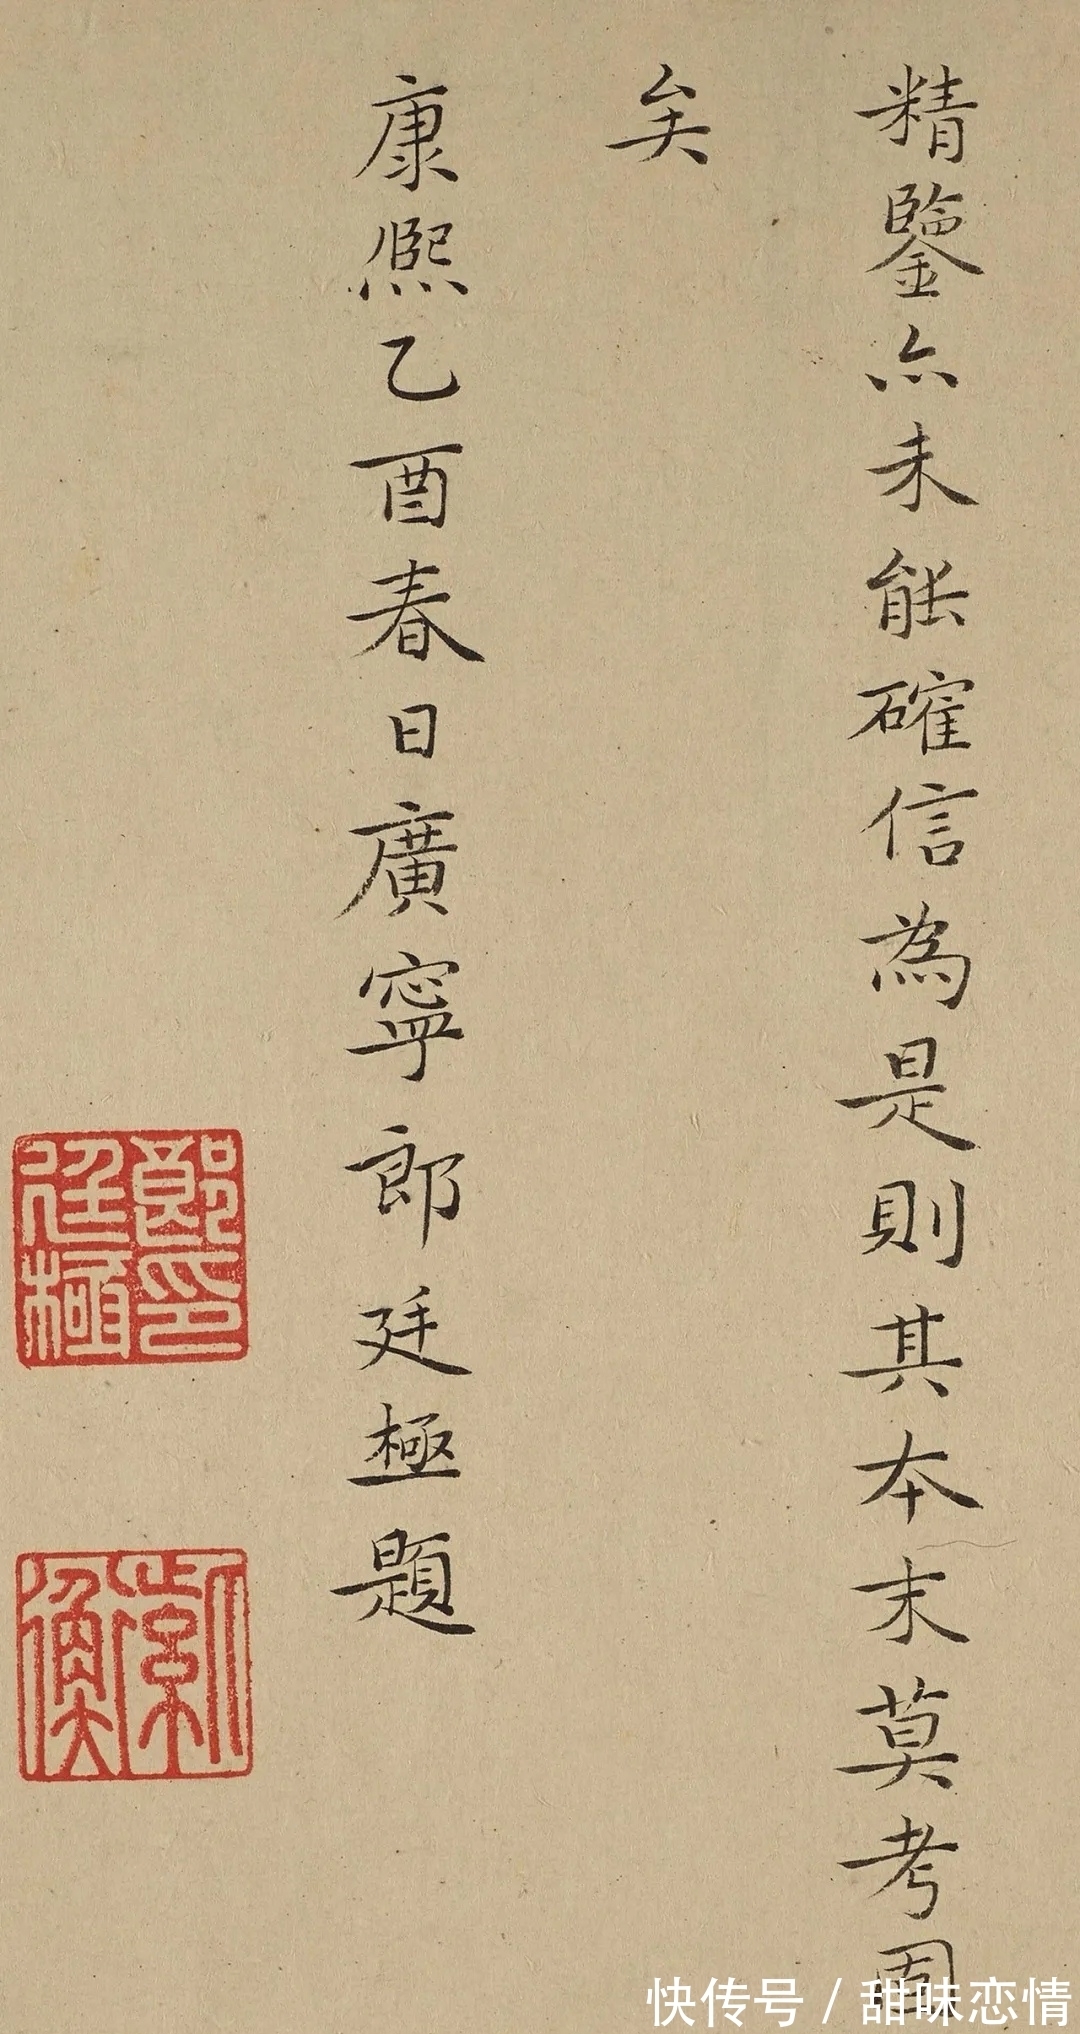 精鑒亦未能確信為是則其本末莫考固
矣
康熙乙酉春日廣寧郎廷極題
郎印廷極
紫衡
快传号 / 甜味恋情